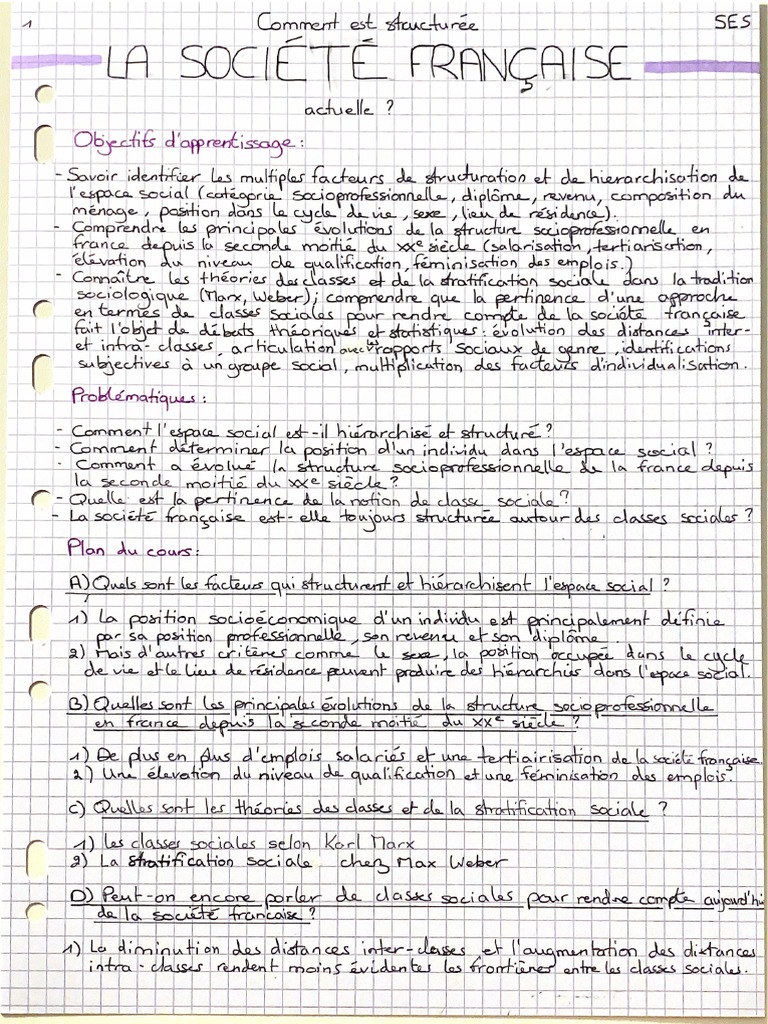 1
Comment est structurée
SES
LA SOCIÉTÉ FRANÇAISE
actuelle ?
Objectifs d'apprentissage :
- Savoir identifier les multiples facteurs de structuration et de hierarchisation de
l'espace social (catégorie socioprofessionnelle, diplôme, revenu, composition du
ménage, position dans le cycle de vie, sexe, lieu de résidence).
- Comprendre les principales évolutions de la structure socioprofessionnelle en
france depuis la seconde moitié du XXe siècle (salarisation, tertiarisation,
élévation du niveau de qualification, féminisation des emplois.)
- Connaître les théories des classes et de la stratification sociale dans la tradition
sociologique (Marx, Weber) ; comprendre que la pertinence d'une approche
en termes de classes sociales pour rendre compte de la société française
fait l'objet de débats théoriques et statistiques : évolution des distances inter-
et intra-classes, articulation avec les rapports sociaux de genre, identifications
subjectives à un groupe social, multiplication des facteurs d'individualisation.
Problématiques :
- Comment l'espace social est-il hiérarchisé et structuré ?
- Comment déterminer la position d'un individu dans l'espace social ?
- Comment a évolué la structure socioprofessionnelle de la france depuis
la seconde moitié du XXe siècle ?
- Quelle est la pertinence de la notion de classe sociale ?
- La société française est-elle toujours structurée autour des classes sociales ?
Plan du cours :
A) Quels sont les facteurs qui structurent et hiérarchisent l'espace social ?
1) La position socioéconomique d'un individu est principalement définie
par sa position professionnelle, son revenu et son diplôme.
2) Mais d'autres critères comme le sexe, la position occupée dans le cycle
de vie et le lieu de résidence peuvent produire des hiérarchies dans l'epace social.
B) Quelles sont les principales évolutions de la structure socioprofessionnelle
en france depuis la seconde moitié du XXe siècle ?
1) De plus en plus d'emplois salariés et une tertiairisation de la société française.
2) Une élevation du niveau de qualification et une féminisation des emplois.
C) Quelles sont les théories des classes et de la stratification sociale ?
1) Les classes sociales selon Karl Marx
2) La stratification sociale chez Max Weber
D) Peut-on encore parler de classes sociales pour rendre compte aujourd'hui
de la société francaise ?
1) La diminution des distances inter-classes et l'augmentation des distances
intra-classes rendent moins évidentes les frontières entre les classes sociales.